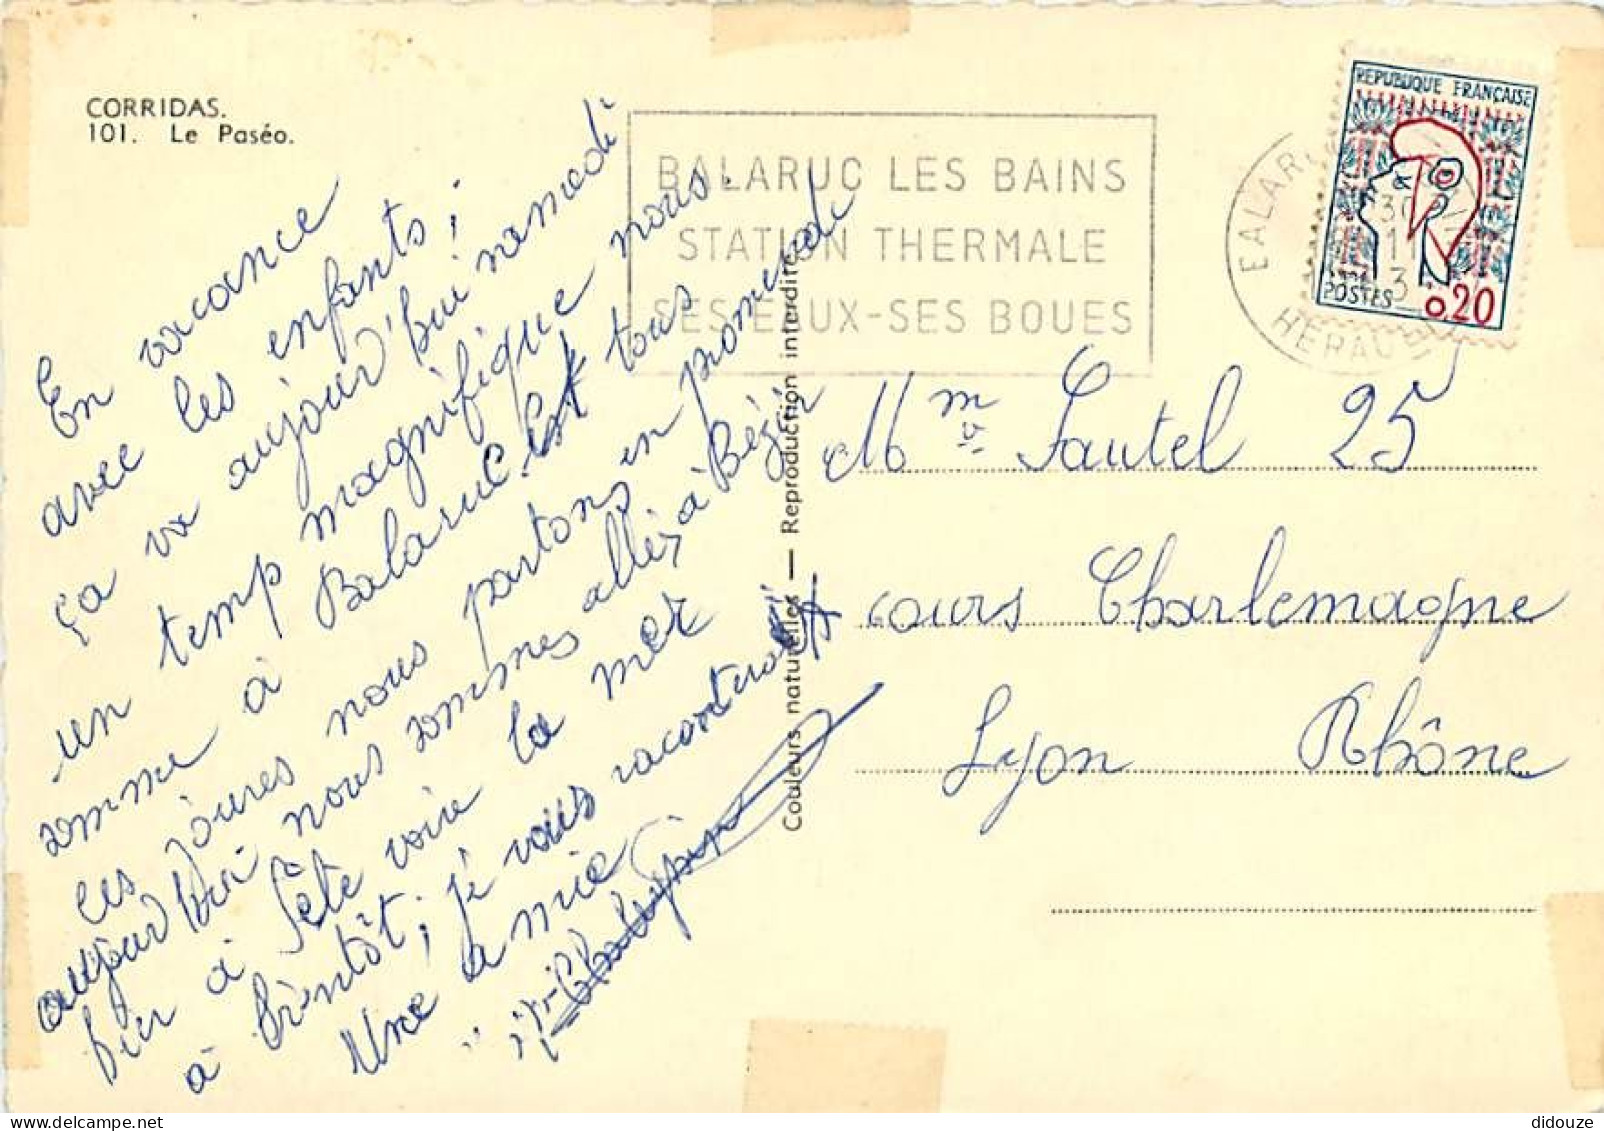 CORRIDAS.
101. Le Paséo.
En vacance
avec les enfants;
ça va aujourd'hui samedi
un temp magnifique nous
somme à Balaruc. Est tous
les joures nous partons en promenade
aujourd'hui nous sommes allés à Bézier
à Sète voire la mer
à bientôt; je vous raconterai
Une amie
Couleurs naturelles — Reproduction interdite.
BALARUC LES BAINS
STATION THERMALE
SES EAUX-SES BOUES
REPUBLIQUE FRANÇAISE
POSTES 0,20
HERAULT
Mme Fautel 25
cours Charlemagne
Lyon Rhône
didouze